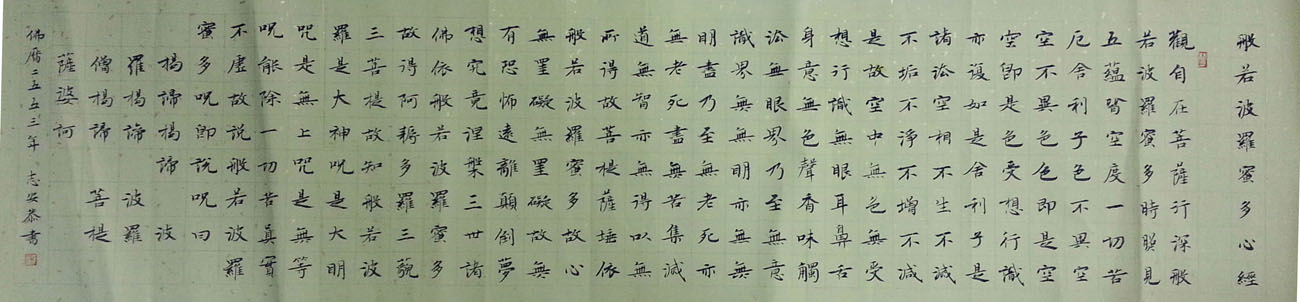 般若波羅蜜多心經
觀自在菩薩行深般
若波羅蜜多時照見
五蘊皆空度一切苦
厄舍利子色不異空
空不異色色即是空
空即是色受想行識
亦復如是舍利子是
諸法空相不生不滅
不垢不淨不增不減
是故空中無色無受
想行識無眼耳鼻舌
身意無色聲香味觸
法無眼界乃至無意
識界無無明亦無無
明盡乃至無老死亦
無老死盡無苦集滅
道無智亦無得以無
所得故菩提薩埵依
般若波羅蜜多故心
無罣礙無罣礙故無
有恐怖遠離顛倒夢
想究竟涅槃三世諸
佛依般若波羅蜜多
故得阿耨多羅三藐
三菩提故知般若波
羅是大神呪是大明
呪是無上呪是無等
呪能除一切苦真實
不虛故說般若波羅
蜜多呪即說呪曰
揭諦揭諦 波
羅揭諦 波羅
僧揭諦 菩提
薩婆訶
佛曆二五五三年 志安恭書